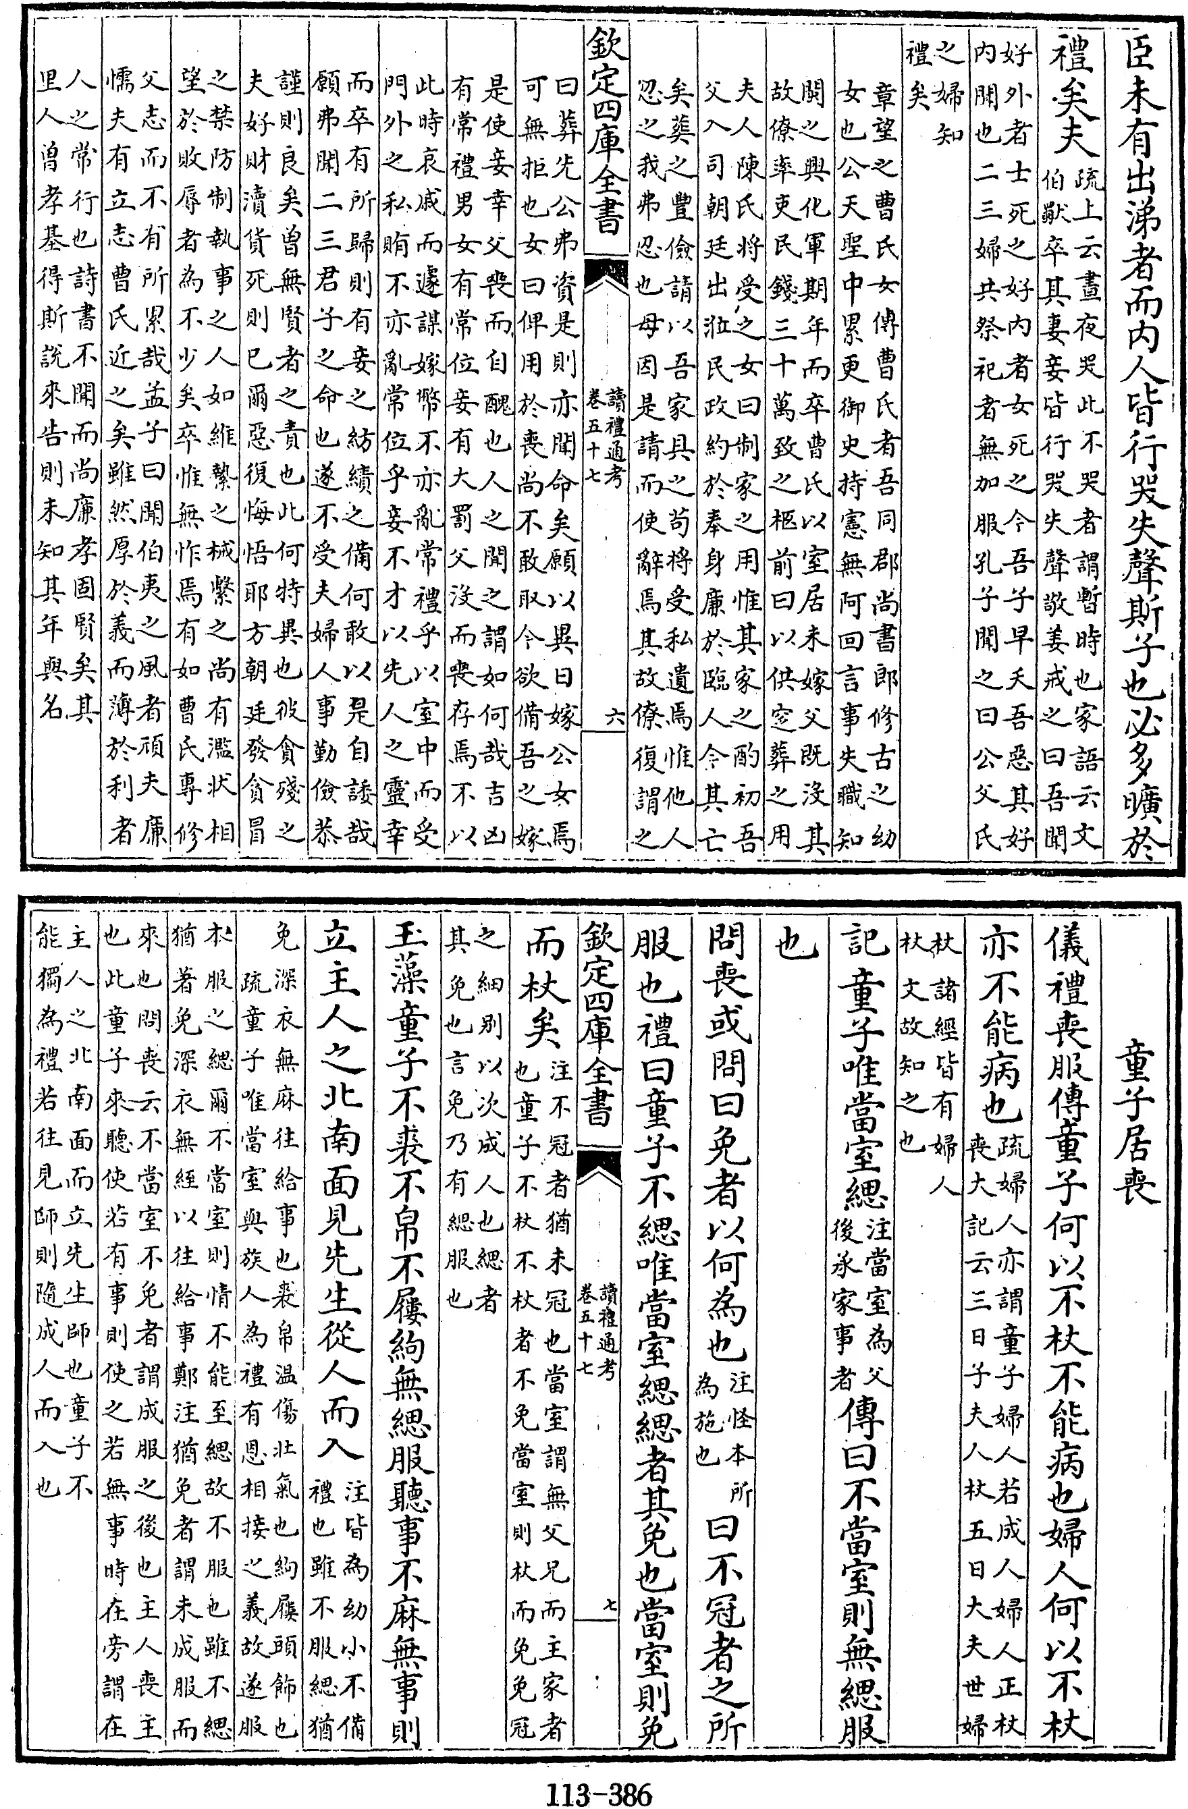 臣未有出涕者而内人皆行哭失聲斯子也必多曠於
禮矣夫
疏上云晝夜哭此不哭者謂暫時也家語云文
伯歜卒其妻妾皆行哭失聲敬姜戒之曰吾聞
好外者士死之好内者女死之今吾子早夭吾惡其好
内聞也二三婦共祭祀者無加服孔子聞之曰公父氏
之婦知
禮矣
章望之曹氏女傳曹氏者吾同郡尚書郎修古之幼
女也公天聖中累更御史持憲無阿回言事失職知
闗之興化軍期年而卒曹氏以室居未嫁父既沒其
故僚率吏民錢三十萬致之柩前曰以供窆葬之用
夫人陳氏將受之女曰制家之用惟其家之酌初吾
父入司朝廷出涖民政約於奉身廉於臨人今其亡
矣葬之豐儉請以吾家具之苟將受私遺焉惟他人
忍之我弗忍也母因是請而使辭焉其故僚復謂之
欽定四庫全書
讀禮通考
卷五十七
六
曰葬先公弗資是則亦聞命矣願以異日嫁公女焉
可無拒也女曰俾用於喪尚不敢取今欲備吾之嫁
是使妾幸父喪而自醜也人之聞之謂如何哉吉凶
有常禮男女有常位妾有大罰父沒而喪存焉不以
此時哀戚而遽謀嫁幣不亦亂常禮乎以室中而受
門外之私賄不亦亂常位乎妾不才以先人之靈幸
而卒有所歸則有妾之紡績之備何敢以是自諉哉
願弗聞二三君子之命也遂不受夫婦人事勤儉恭
謹則良矣曾無賢者之責也此何特異也彼貪殘之
夫好財瀆貨死則已爾惡復悔悟耶方朝廷發貪冒
之禁防制執事之人如維縶之械繫之尚有濫状相
望於敗辱者為不少矣卒惟無怍焉有如曹氏專修
父志而不有所累哉孟子曰聞伯夷之風者頑夫廉
懦夫有立志曹氏近之矣雖然厚於義而薄於利者
人之常行也詩書不聞而尚廉孝固賢矣其
里人曾孝基得斯說來告則未知其年與名
童子居喪
儀禮喪服傳童子何以不杖不能病也婦人何以不杖
亦不能病也
疏婦人亦謂童子婦人若成人婦人正杖
喪大記云三日子夫人杖五日大夫世婦
杖諸經皆有婦人
杖文故知之也
記童子唯當室緦
注當室為父
後承家事者
傳曰不當室則無緦服
也
問喪或問曰免者以何為也
注怪本所
為施也
曰不冠者之所
服也禮曰童子不緦唯當室緦緦者其免也當室則免
欽定四庫全書
讀禮通考
卷五十七
七
而杖矣
注不冠者猶未冠也當室謂無父兄而主家者
也童子不杖不杖者不免當室則杖而免免冠
之細别以次成人也緦者
其免也言免乃有緦服也
玉藻童子不裘不帛不屨絇無緦服聽事不麻無事則
立主人之北南面見先生從人而入
注皆為幼小不備
禮也雖不服緦猶
免深衣無麻往給事也裘帛温傷壯氣也絇屨頭飾也
疏童子唯當室與族人為禮有恩相接之義故遂服
本服之緦爾不當室則情不能至緦故不服也雖不緦
猶著免深衣無絰以往給事鄭注猶免者謂未成服而
來也問喪云不當室不免者謂成服之後也主人喪主
也此童子來聽使若有事則使之若無事時在旁謂在
主人之北南面而立先生師也童子不
能獨為禮若往見師則隨成人而入也
113-386